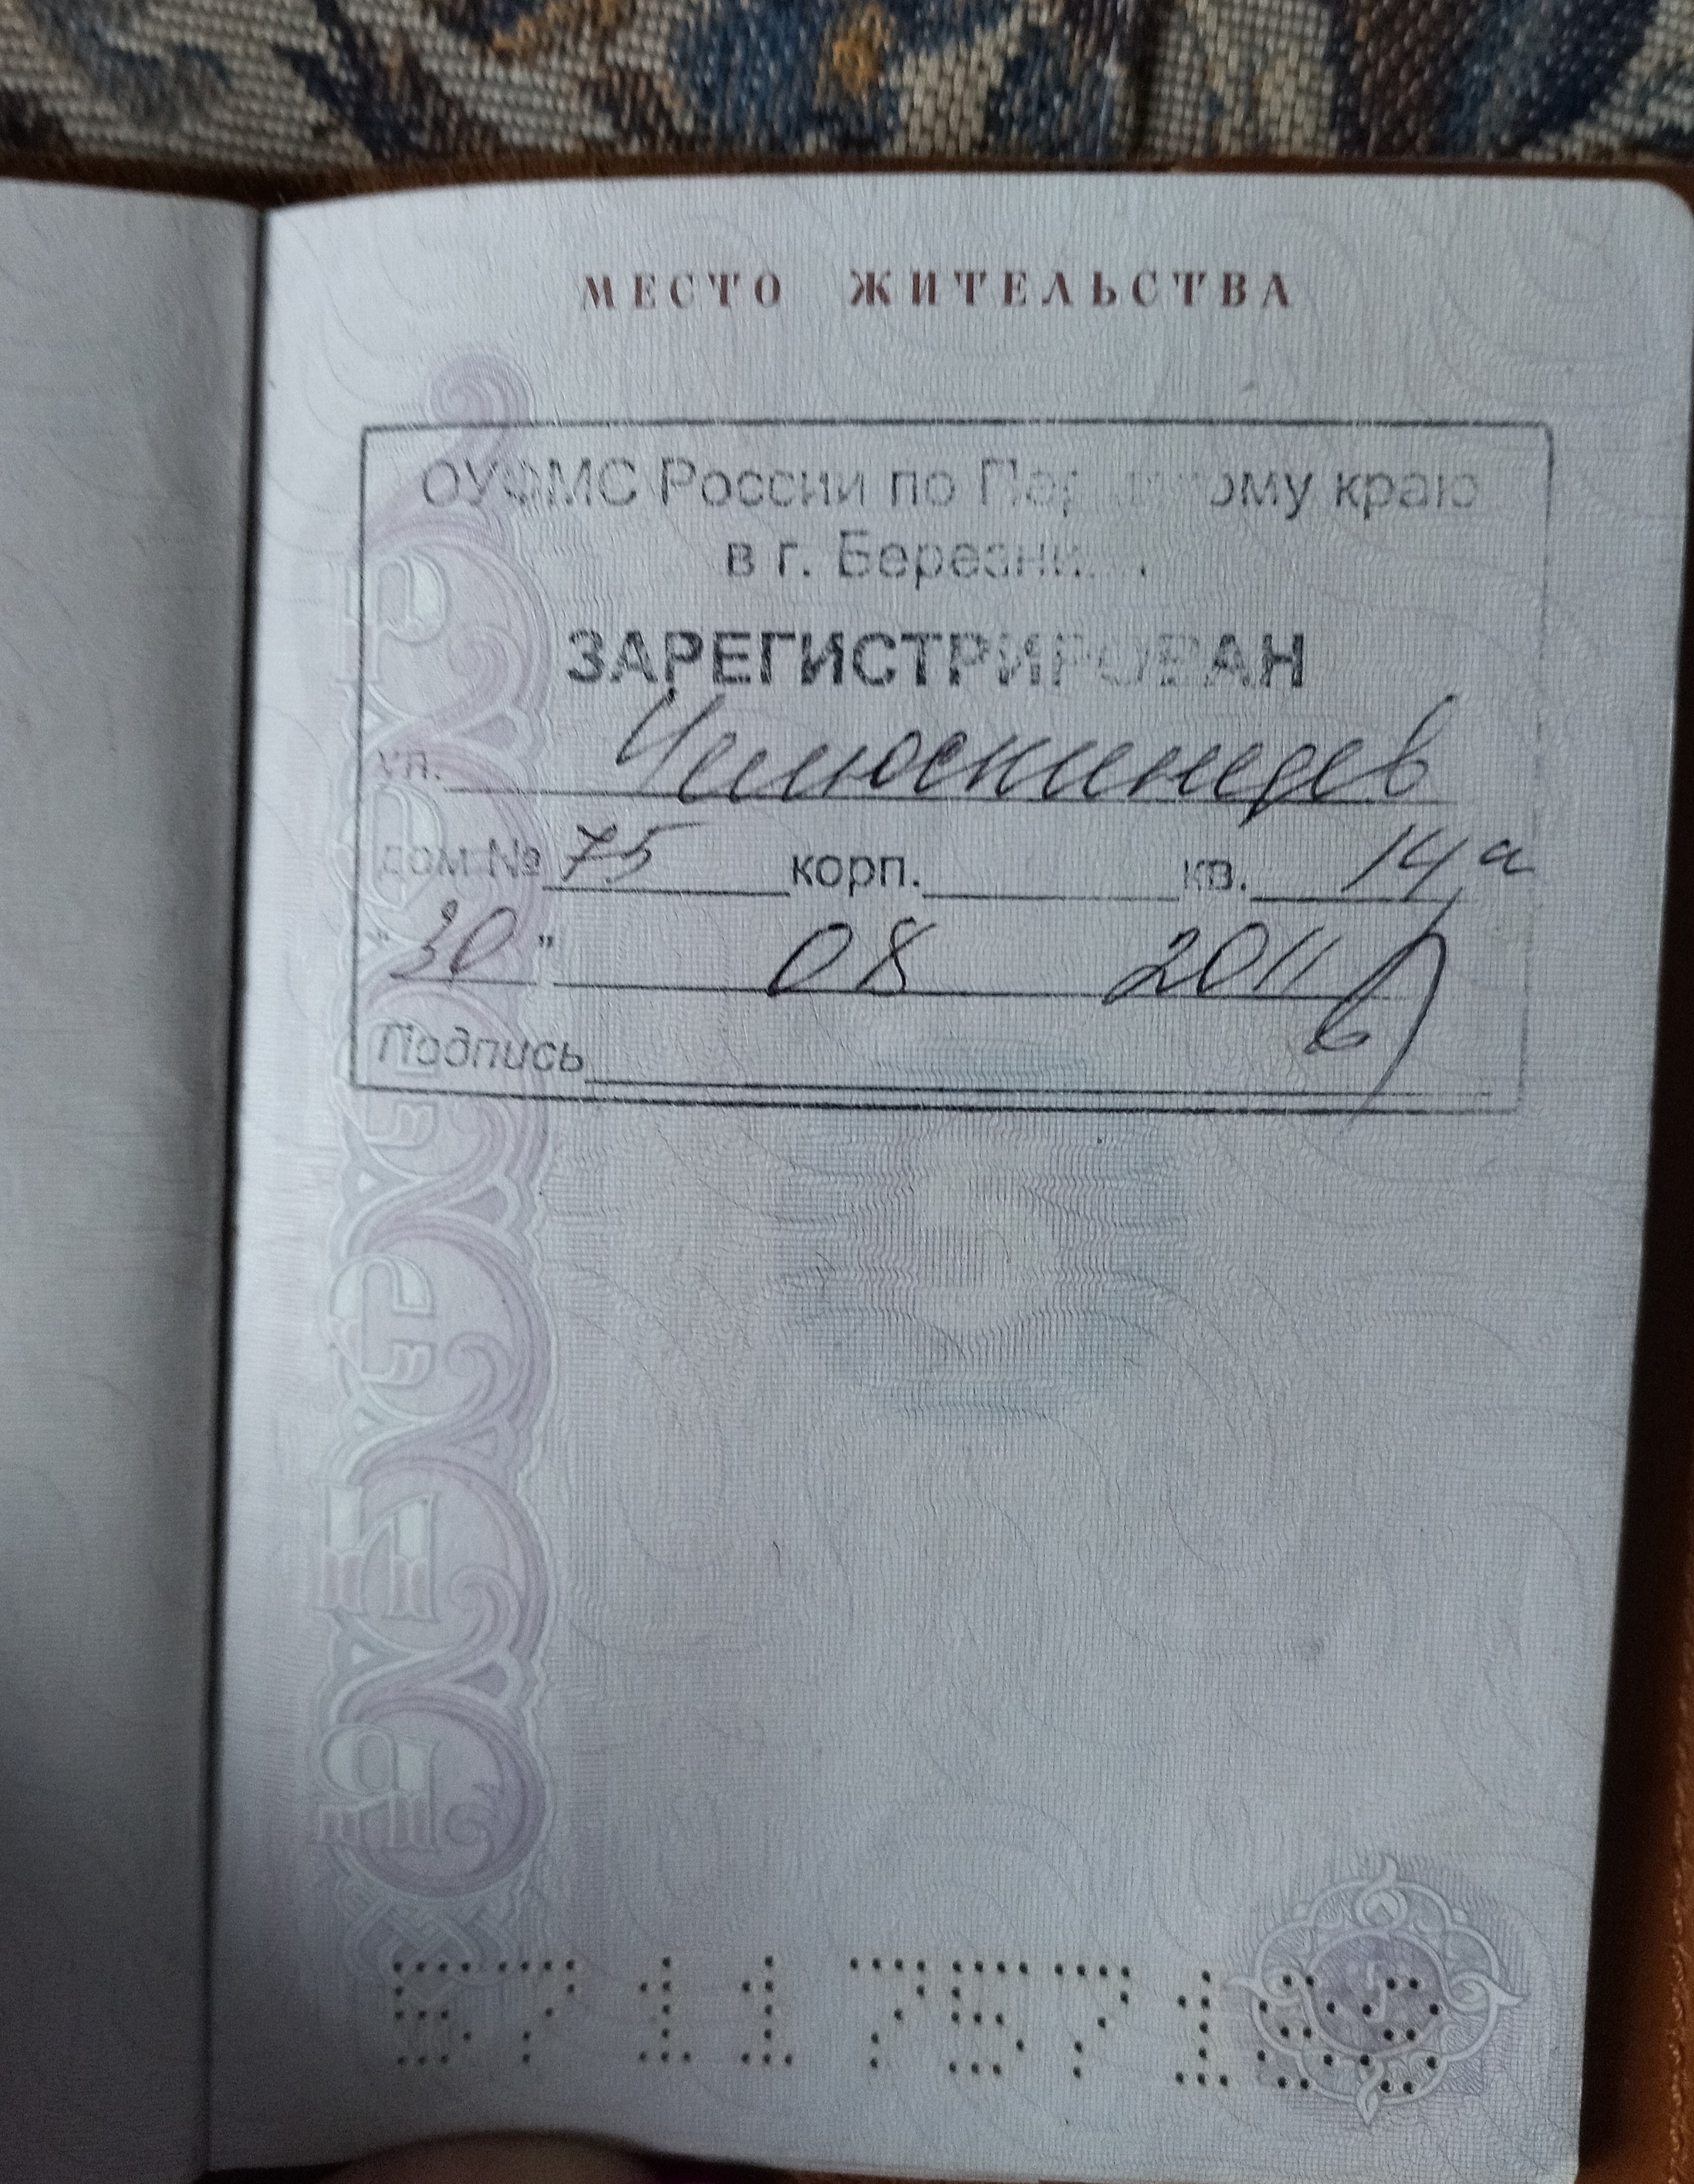 МЕСТО ЖИТЕЛЬСТВА
ОУФМС России по Пермскому краю
в г. Березники
ЗАРЕГИСТРИРОВАН
ул. Челюскинцев
дом № 75 корп. кв. 14а
"30" 08 2011
Подпись